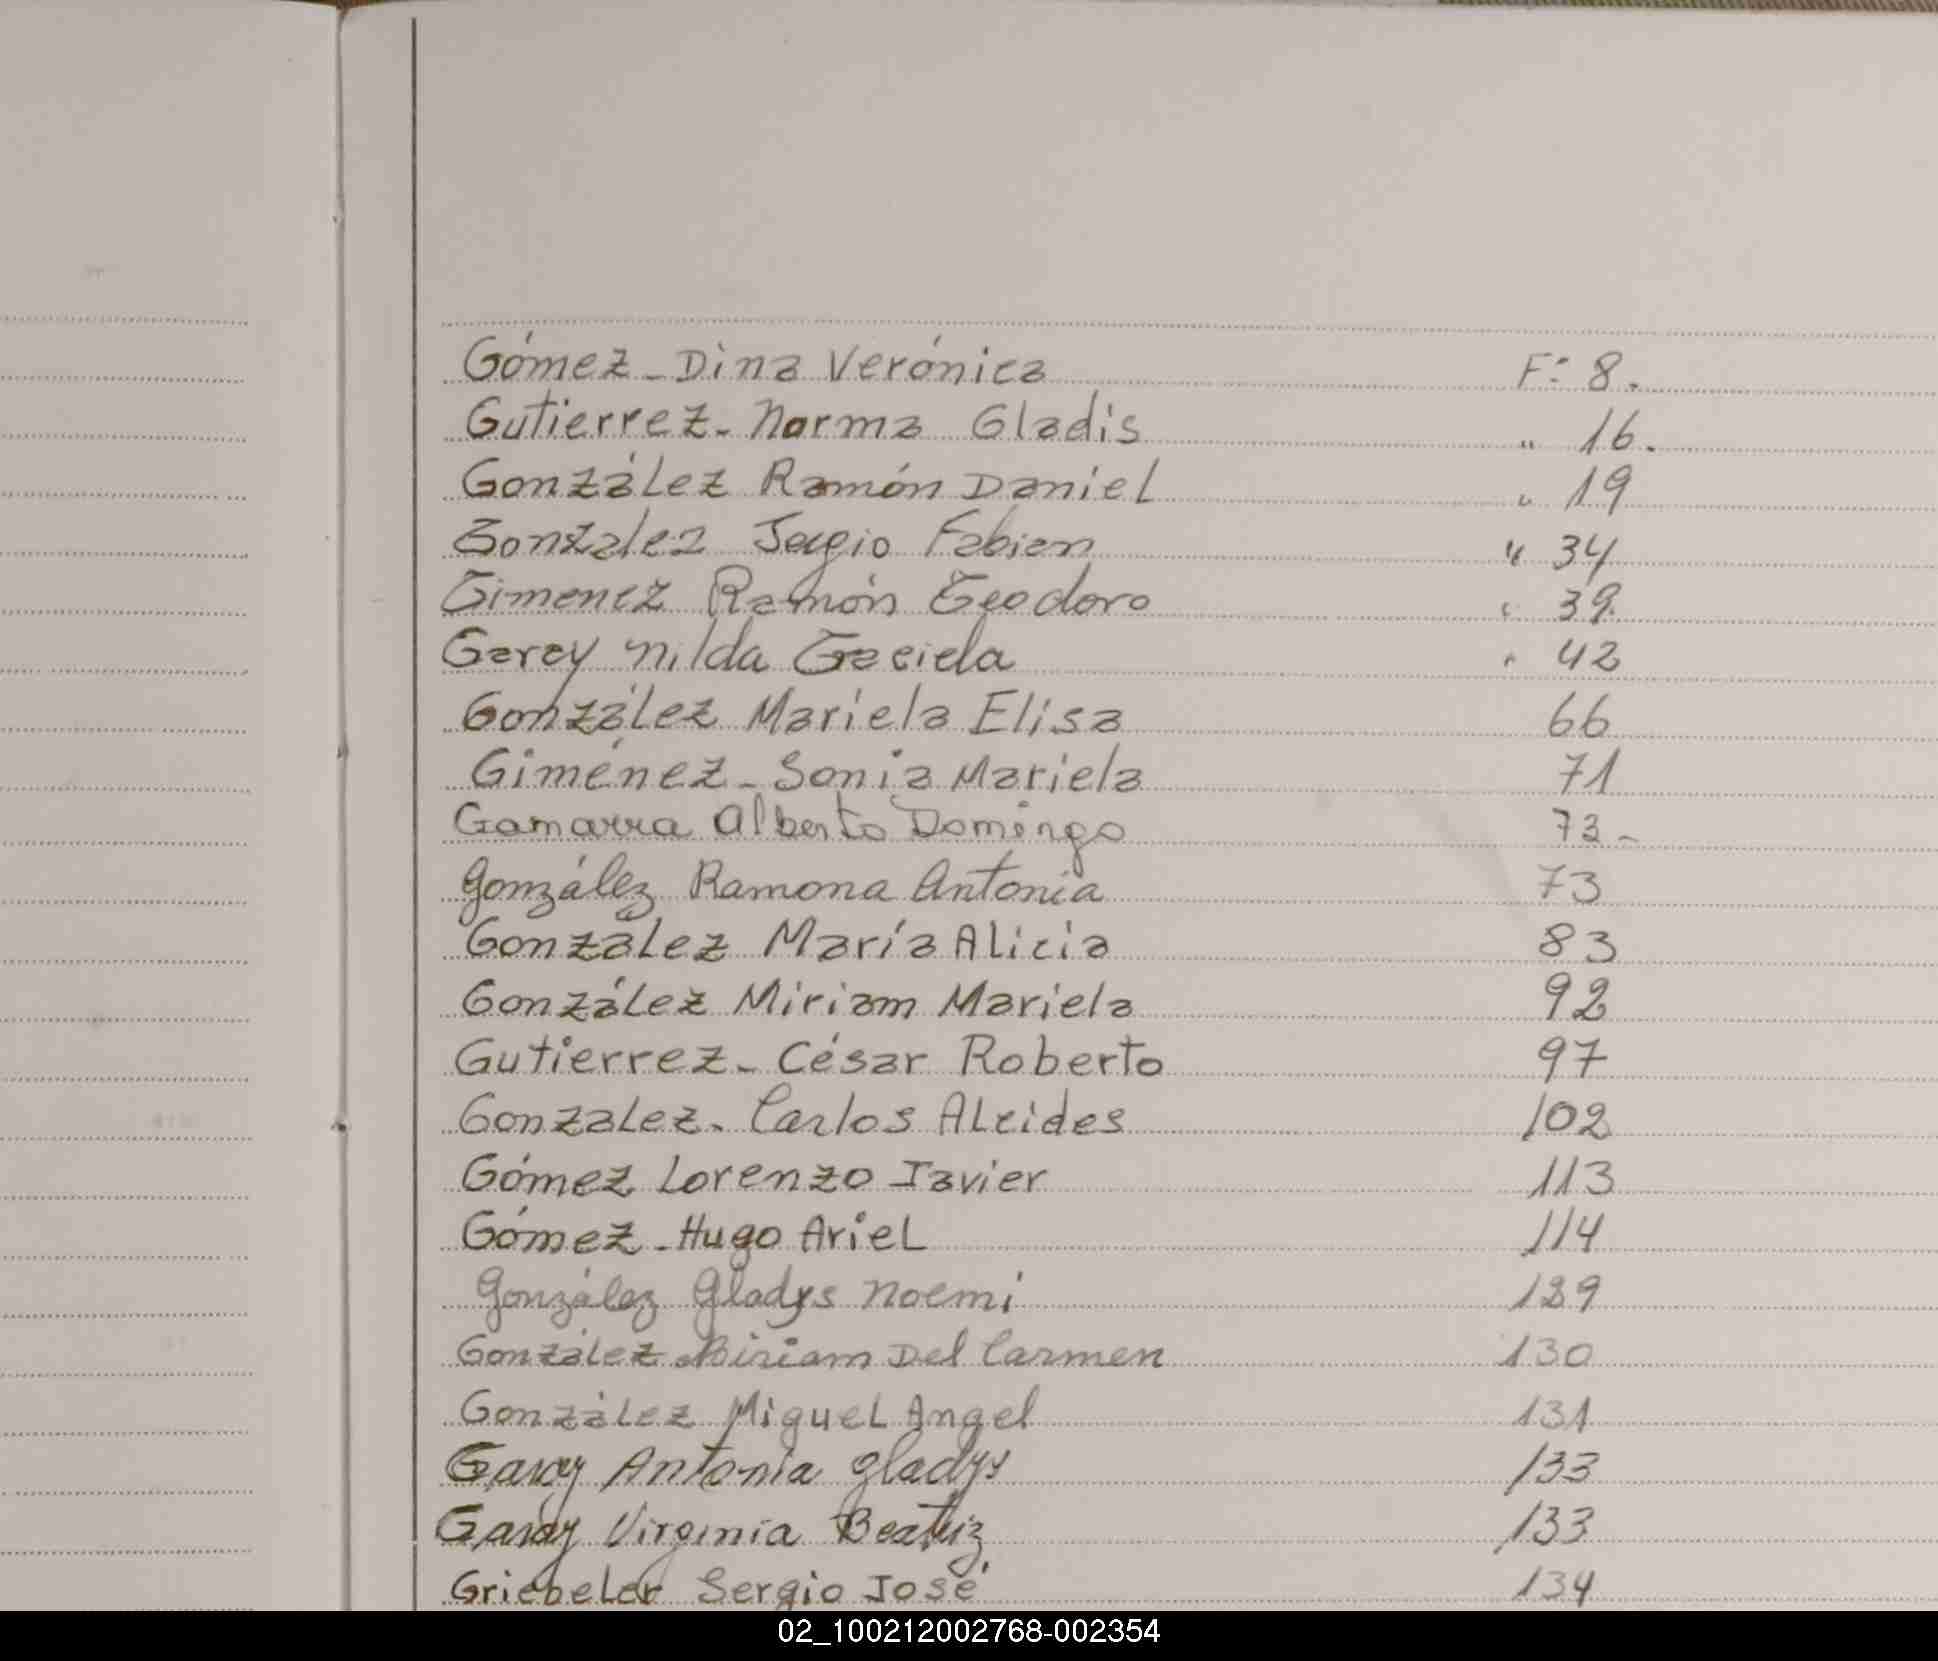 Gómez - Dina Verónica F: 8.
Gutierrez - Norma Gladis " 16.
González Ramón Daniel " 19
Gonzalez Sergio Fabian " 34
Gimenez Ramón Teodoro " 39.
Garay Nilda Graciela " 42
González Mariela Elisa 66
Giménez - Sonia Mariela 71
Gamarra Alberto Domingo 72 -
González Ramona Antonia 73
González María Alicia 83
González Miriam Mariela 92
Gutierrez - César Roberto 97
Gonzalez - Carlos Alcides 102
Gómez Lorenzo Javier 113
Gómez - Hugo Ariel 114
González Gladys Noemí 129
González Miriam Del Carmen 130
González Miguel Angel 131
Garay Antonia Gladys 133
Garay Virginia Beatriz 133
Griebeler Sergio José 134
02_100212002768-002354